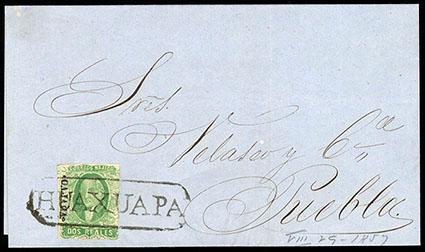 Sres.
Velasco y Ca
Puebla.
CORREOS MEJICO
OAJACA
HUAXUAPA
DOS REALES
VIII-29-1857